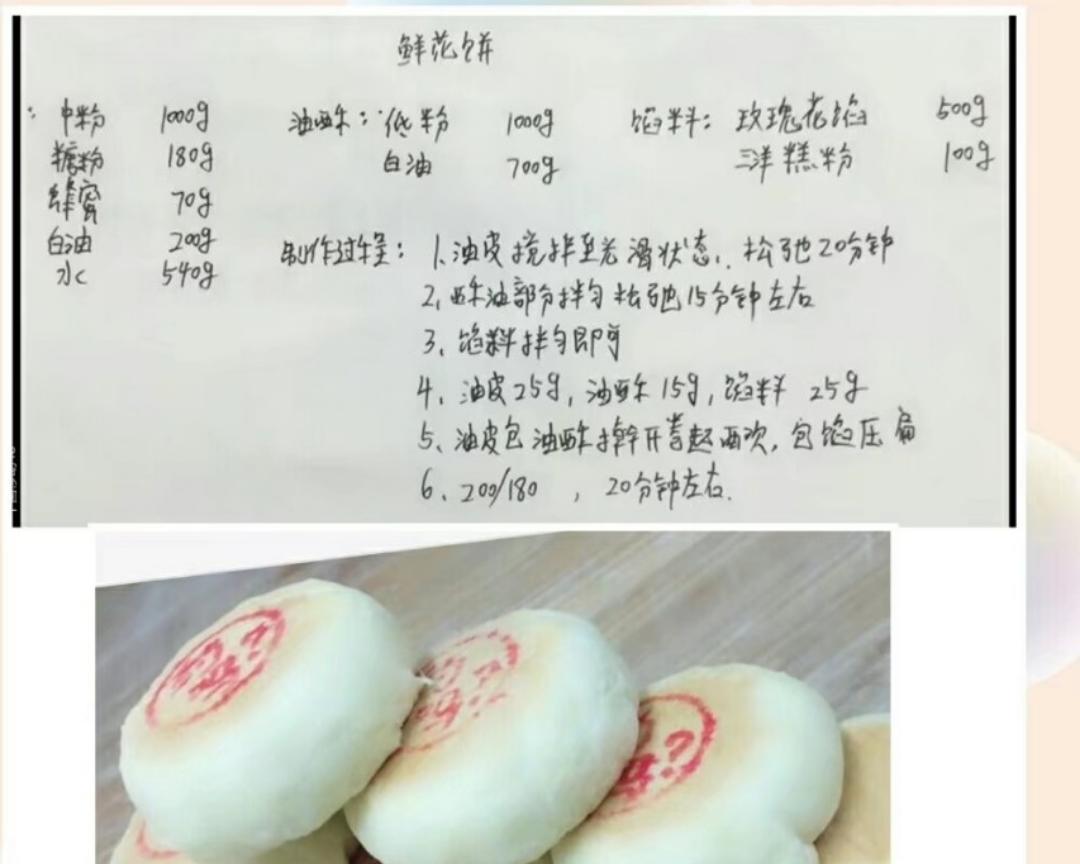 鲜花饼
: 中粉 1000g
糖粉 180g
蜂蜜 70g
白油 200g
水 540g
油酥: 低粉 1000g
白油 700g
馅料: 玫瑰花馅 500g
三洋糕粉 100g
制作过程: 1、油皮搅拌至光滑状态. 松弛20分钟
2、酥油部分拌匀松弛15分钟左右
3、馅料拌匀即可
4、油皮25g, 油酥15g, 馅料 25g
5、油皮包油酥擀开卷起两次, 包馅压扁
6、200/180 , 20分钟左右.